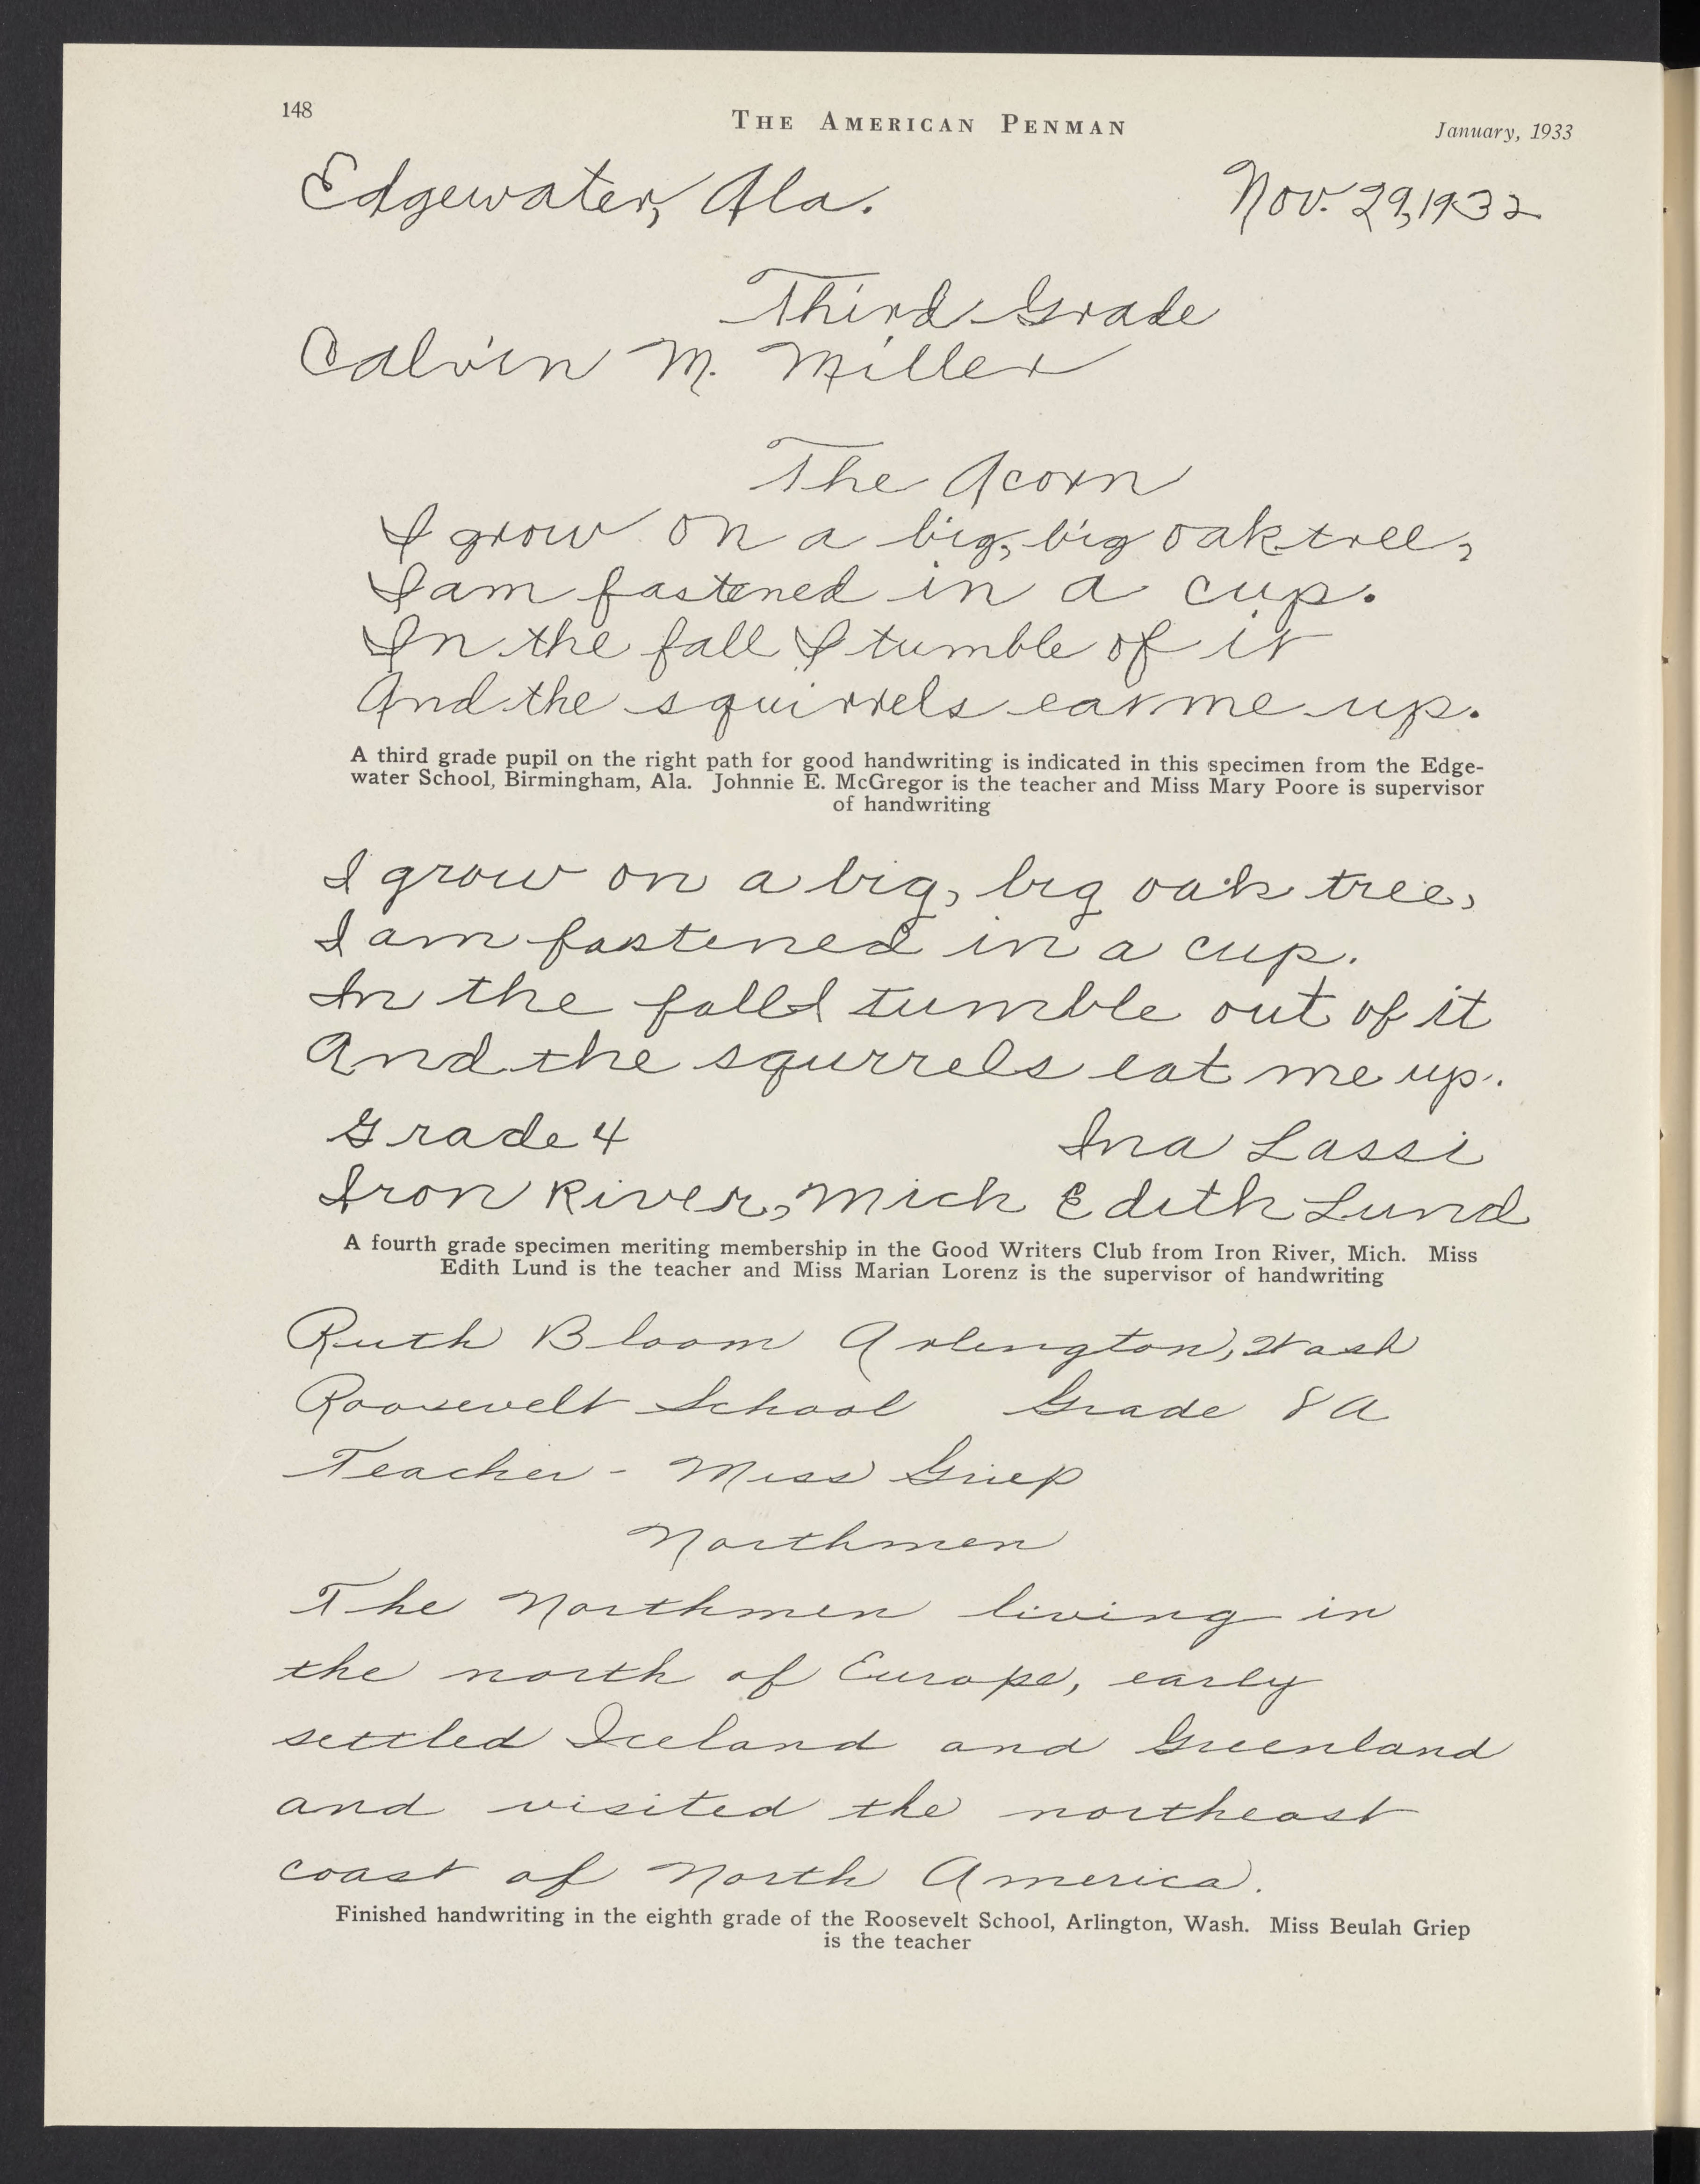 148
THE AMERICAN PENMAN
January, 1933
Edgewater, Ala.
Nov. 29, 1932
Third Grade
Calvin M. Miller
The Acorn
I grow on a big, big oak tree,
I am fastened in a cup.
In the fall I tumble of it
And the squirrels eat me up.
A third grade pupil on the right path for good handwriting is indicated in this specimen from the Edge-
water School, Birmingham, Ala. Johnnie E. McGregor is the teacher and Miss Mary Poore is supervisor
of handwriting
I grow on a big, big oak tree,
I am fastened in a cup.
In the fall I tumble out of it
And the squrrels eat me up.
Grade 4
Ina Lassi
Iron River, Mich
Edith Lund
A fourth grade specimen meriting membership in the Good Writers Club from Iron River, Mich. Miss
Edith Lund is the teacher and Miss Marian Lorenz is the supervisor of handwriting
Ruth Bloom Arlington, Wash
Roosevelt School Grade 8A
Teacher - Miss Griep
Northmen
The Northmen living in
the north of Europe, early
settled Iceland and Greenland
and visited the northeast
coast of North America.
Finished handwriting in the eighth grade of the Roosevelt School, Arlington, Wash. Miss Beulah Griep
is the teacher